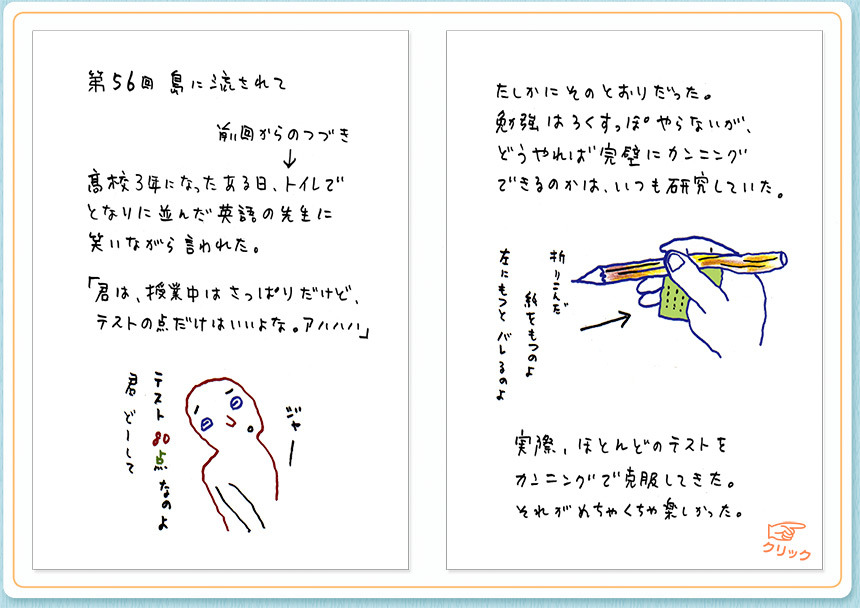 第56回 島に流されて
前回からのつづき
↓
高校3年になったある日、トイレで
となりに並んだ英語の先生に
笑いながら言われた。
「君は、授業中はさっぱりだけど、
テストの点だけはいいよな。アハハハ」
ジャー
テスト80点なのよ
君どーして
たしかにそのとおりだった。
勉強はろくすっぽやらないが、
どうやれば完璧にカンニング
できるのかは、いつも研究していた。
折りこんだ
紙をもつのよ
左にもつとバレるのよ
実際、ほとんどのテストを
カンニングで克服してきた。
それがめちゃくちゃ楽しかった。
クリック